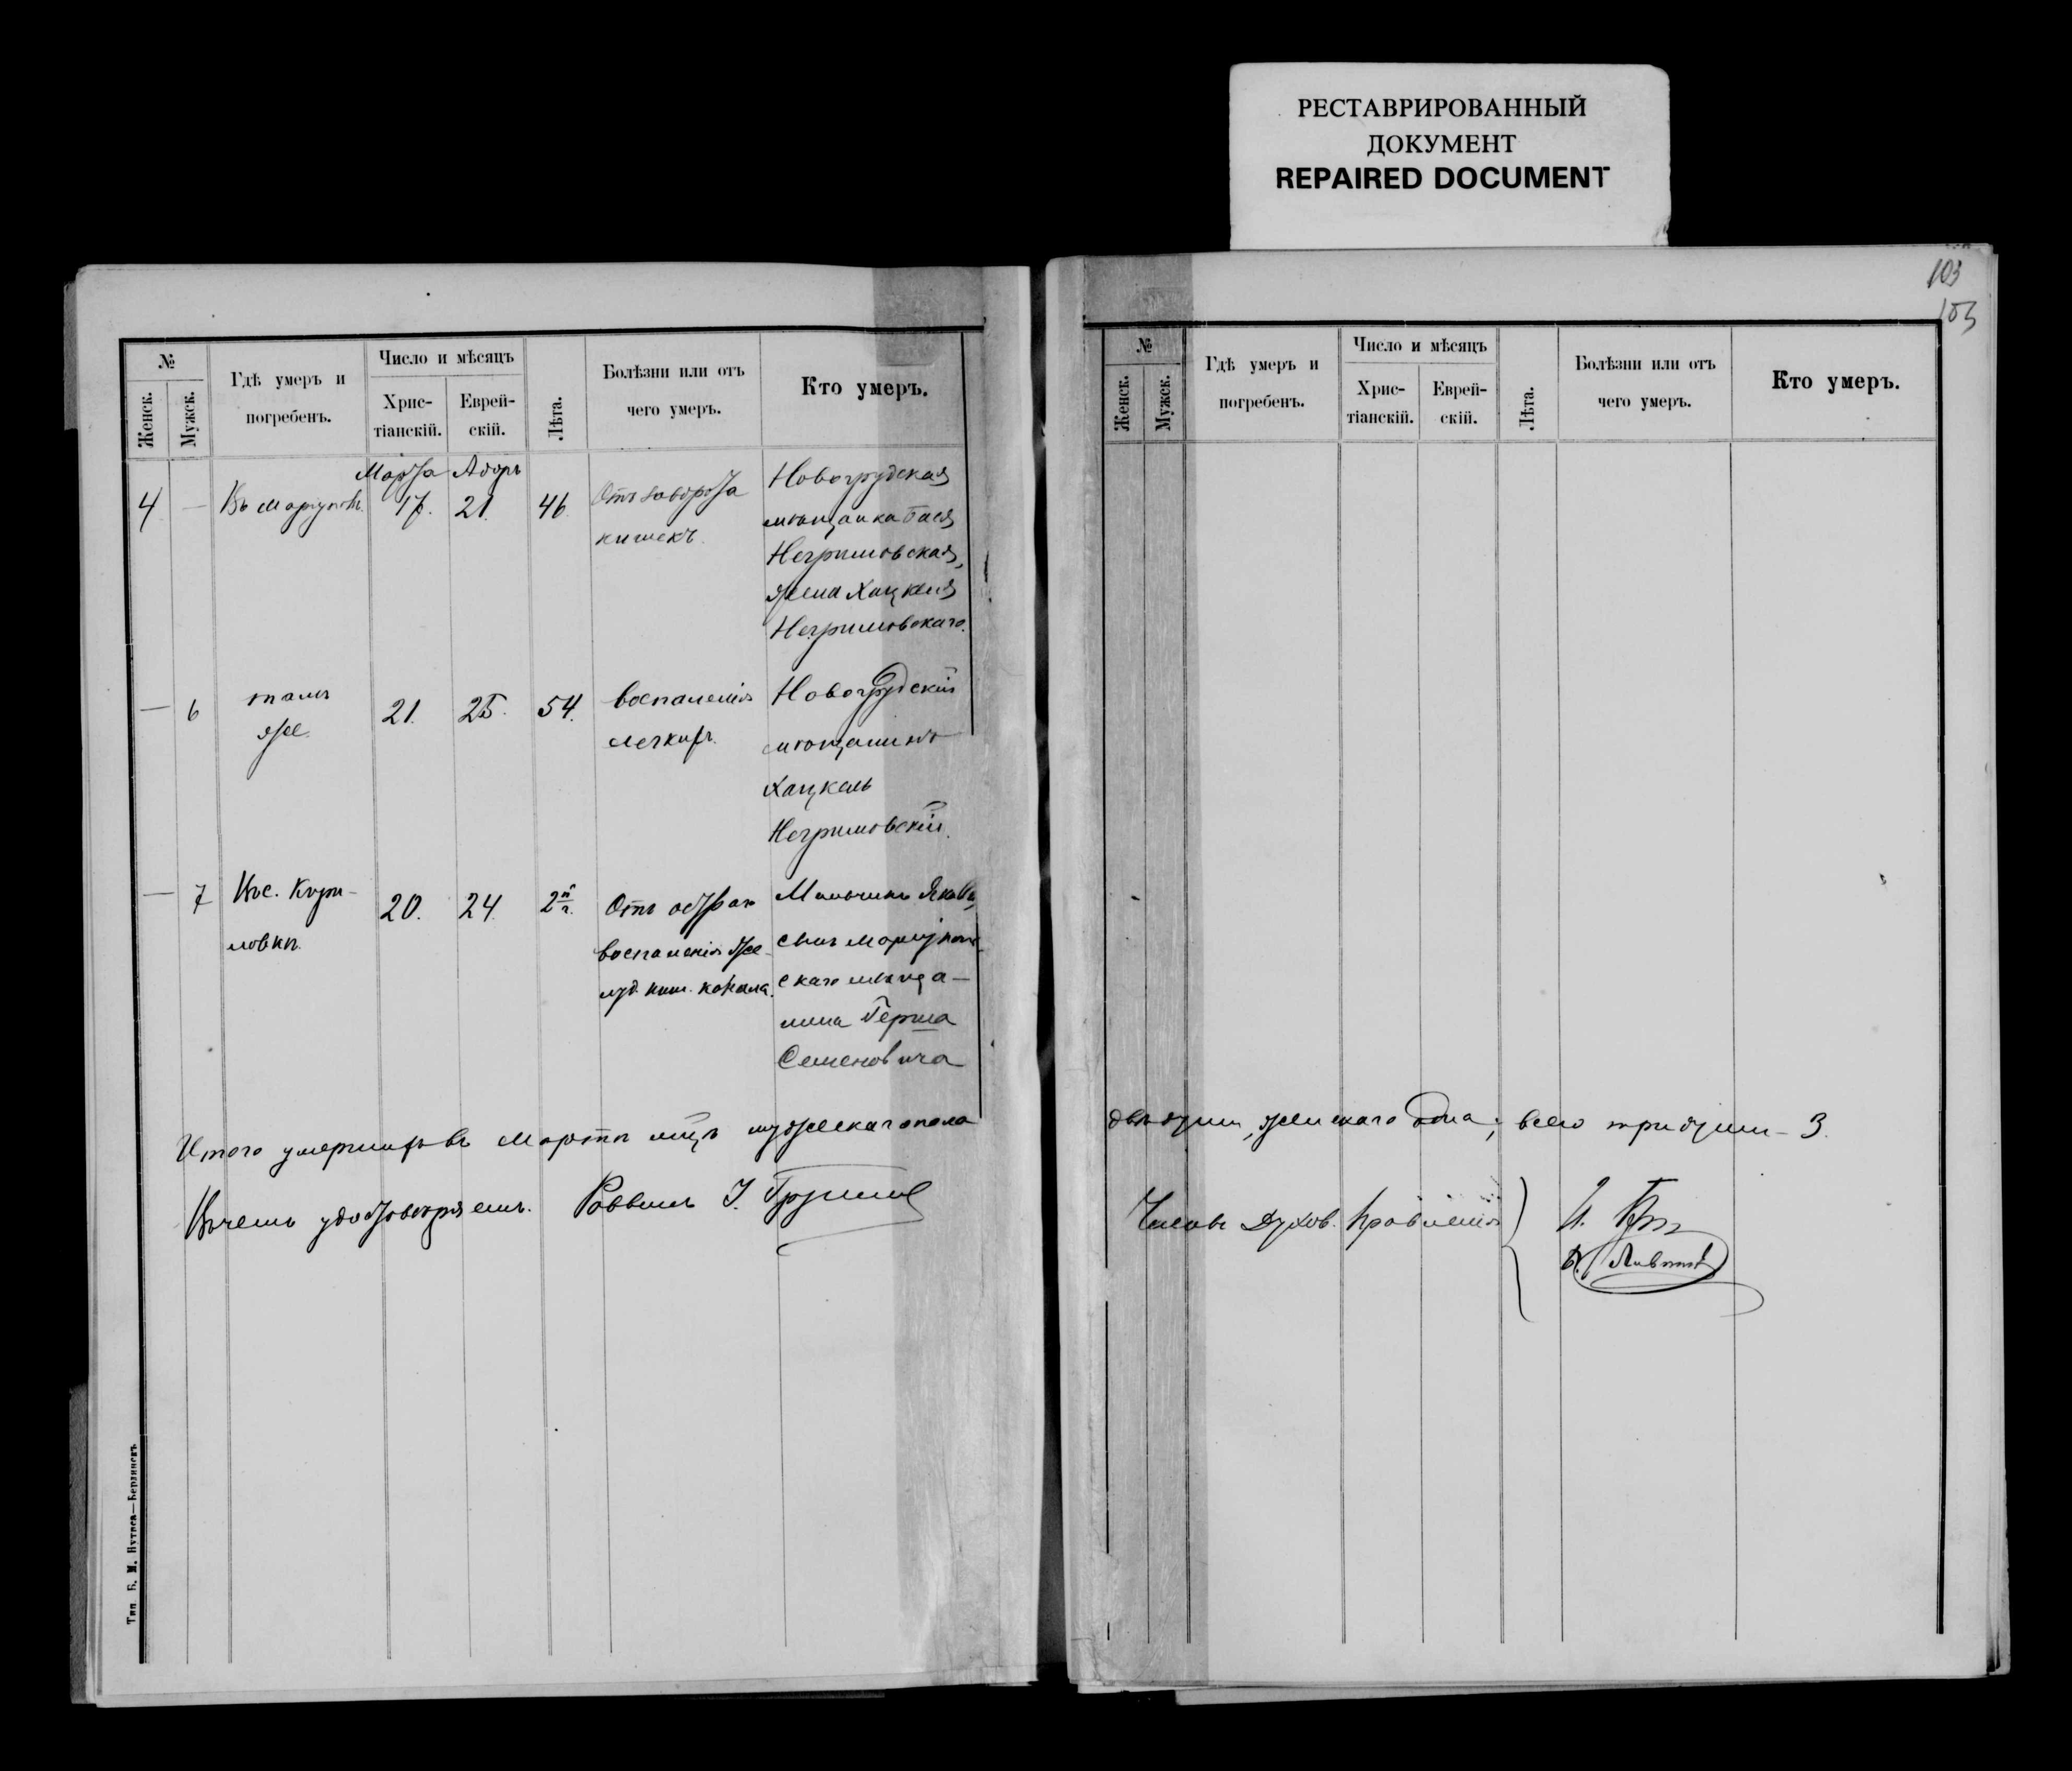 РЕСТАВРИРОВАННЫЙ
ДОКУМЕНТ
REPAIRED DOCUMENT
103
103
№
Женск.
Мужск.
Гдѣ умеръ и
погребенъ.
Число и мѣсяцъ
Хрис-
тіанскій.
Еврей-
скій.
Лѣта.
Болѣзни или отъ
чего умеръ.
Кто умеръ.
Марта Адоръ
4 — Въ Маріуполѣ 17. 21. 46.
Отъ заворота
кишекъ.
Новогрудская
мѣщанка Бася
Негримовская,
жена Хацкеля
Негримовскаго.
— 6
тамъ
же.
21. 25. 54.
воспаленія
легкихъ.
Новогрудскій
мѣщанинъ
Хацкель
Негримовскій.
— 7
20. 24. 2
Отъ остраго
воспаленія же-
луд. киш. канала.
Мальчикъ Яковъ,
сынъ Маріуполь-
скаго мѣща-
нина Герша
Семеновича
Итого умершихъ въ Мартѣ м-цѣ мужескаго пола
Въ чемъ удостовѣряемъ. Раввинъ
Тип. Б. М.
№
Женск.
Мужск.
Гдѣ умеръ и
погребенъ.
Число и мѣсяцъ
Хрис-
тіанскій.
Еврей-
скій.
Лѣта.
Болѣзни или отъ
чего умеръ.
Кто умеръ.
двѣ души, женскаго одна; всего три души – 3.
Члены Духов. Правленія